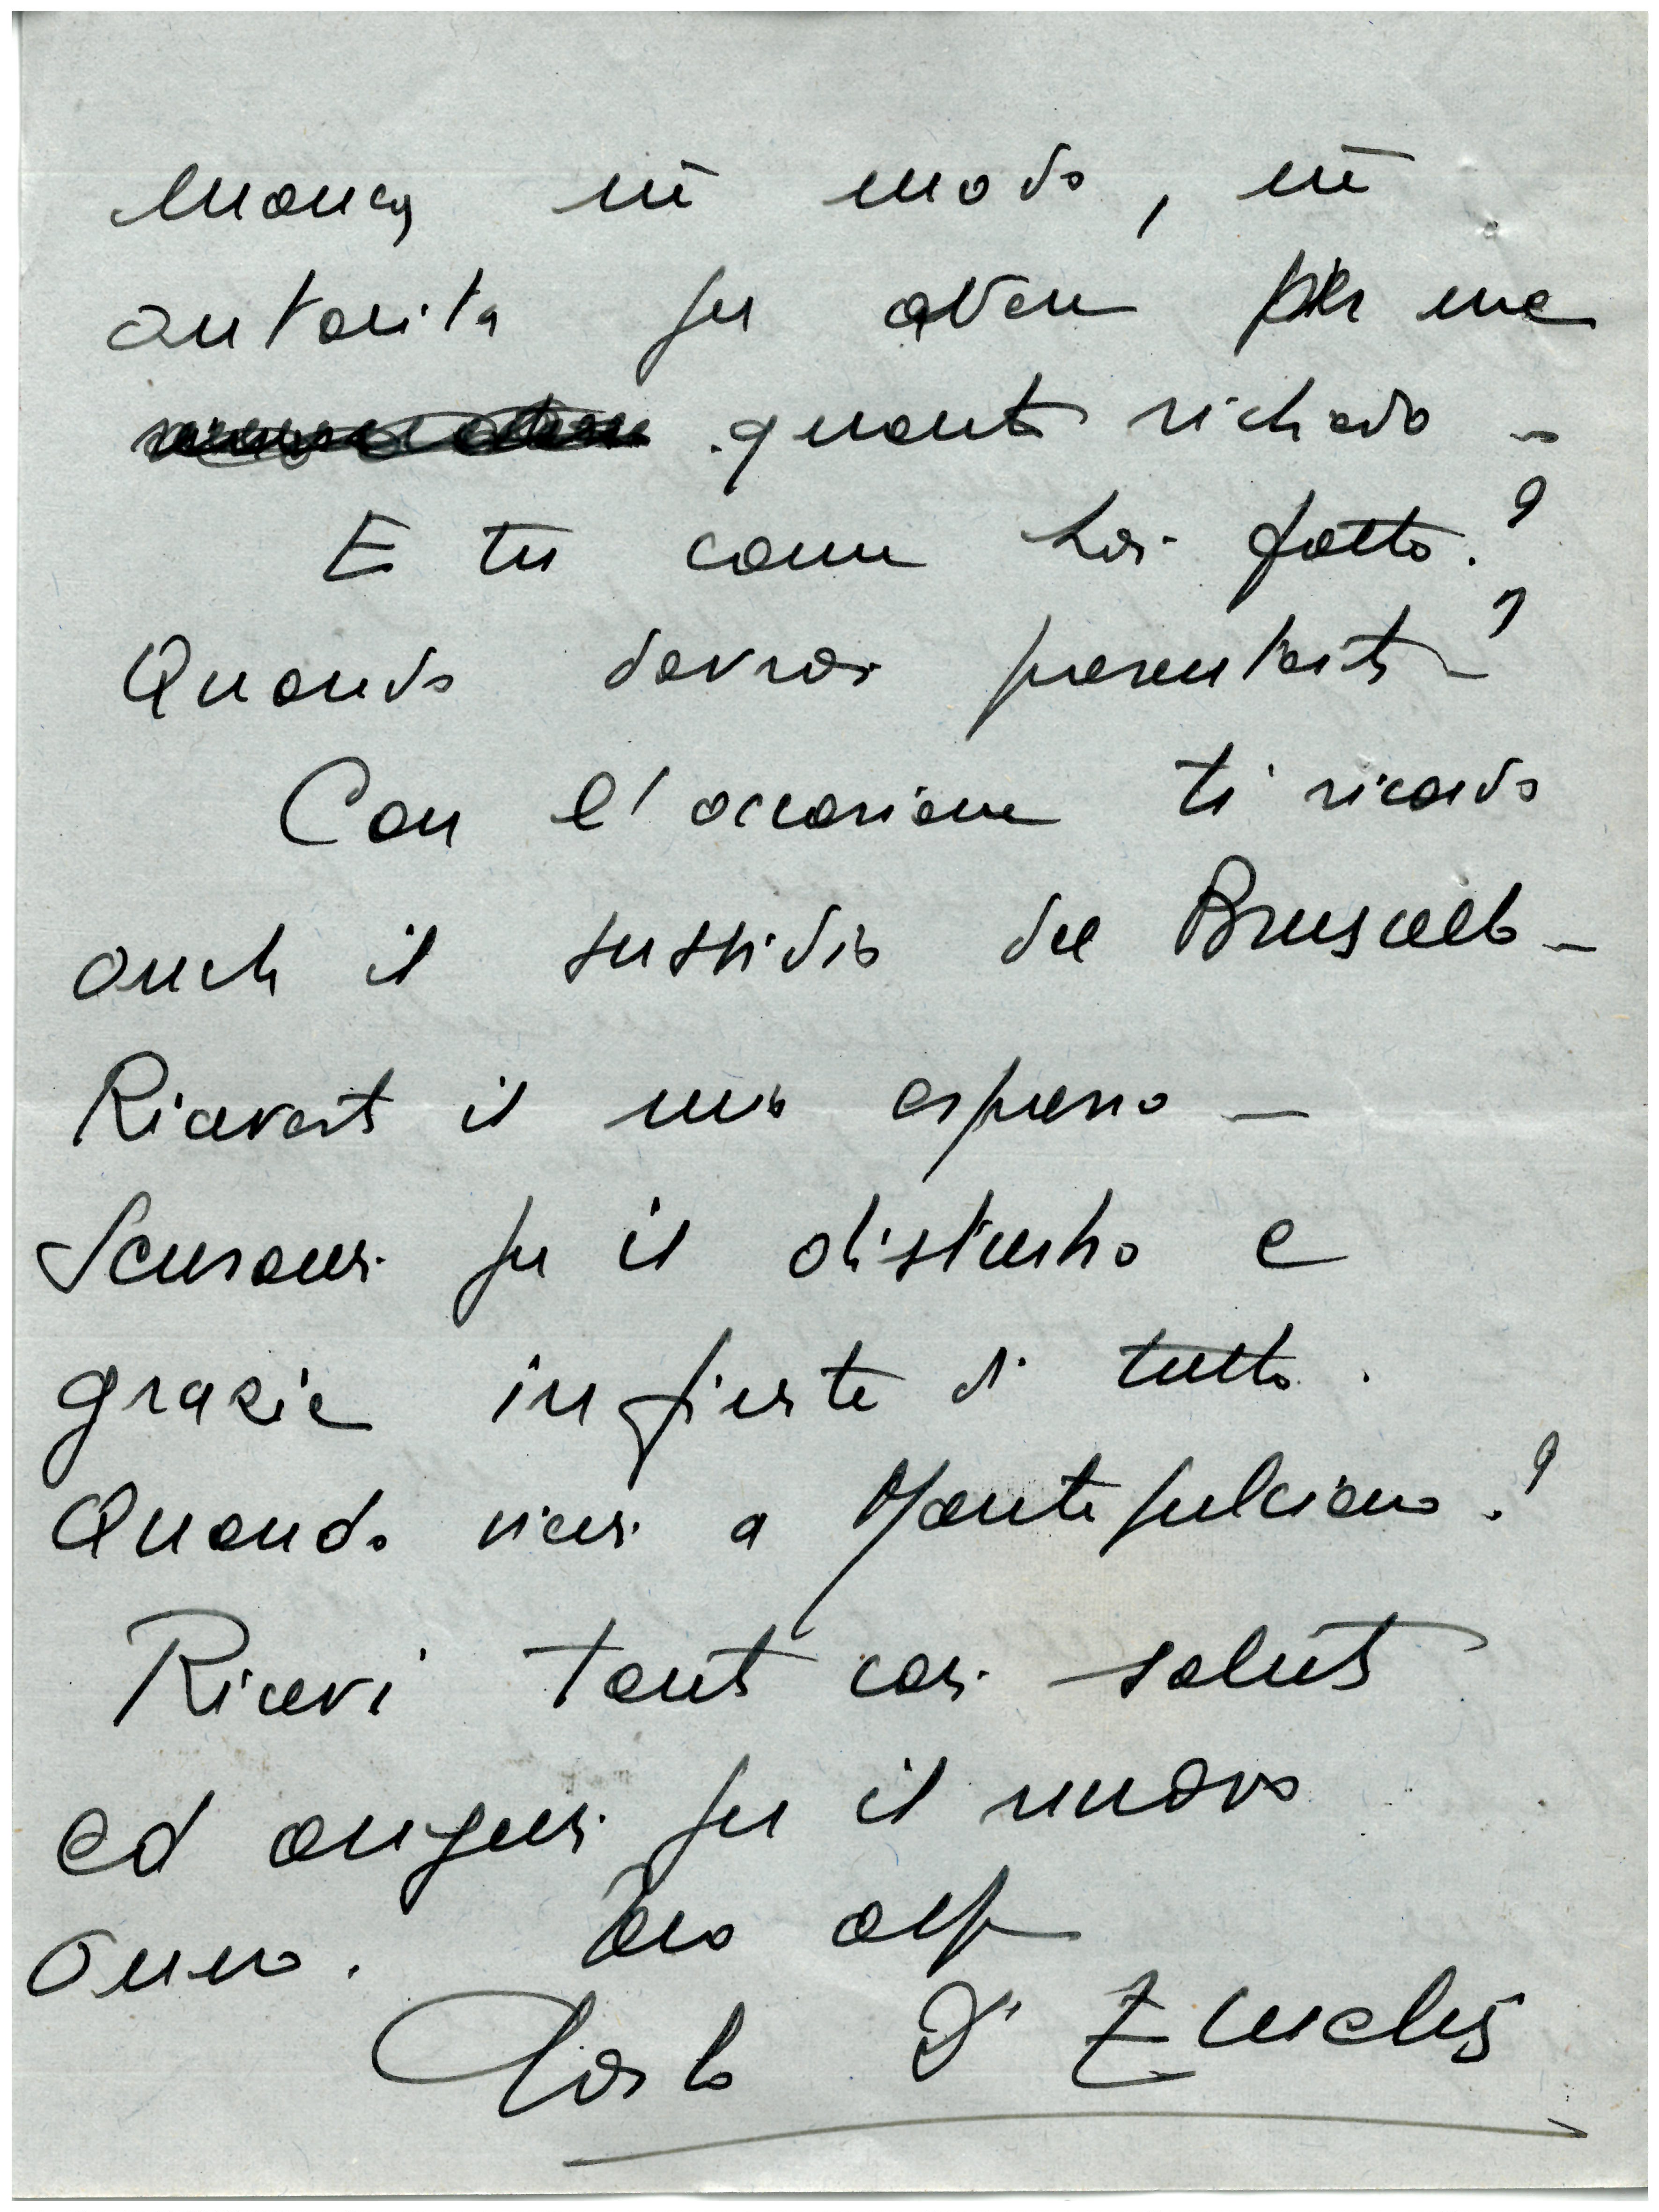 manca nè modo, nè
autorità per avere per me
quanto richiedo –
E tu come hai fatto?
Quando dovrai presentarti?
Con l'occasione ti ricordo
anche il sussidio del Bruscello –
Ricevesti il mio espresso –
Scusami per il disturbo e
grazie infinite di tutto.
Quando vieni a Montepulciano?
Ricevi tanti cari saluti
ed auguri per il nuovo
anno. tuo aff
Carlo